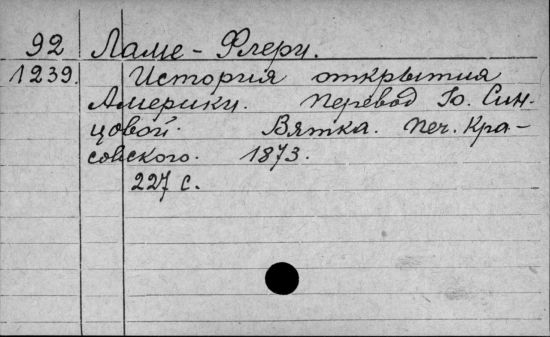 92 Ламе-Флери.
1239. История открытия
Америки. Перевод Ю. Син-
цовой. Вятка. Печ. Кра-
совского. 1873.
227 с.